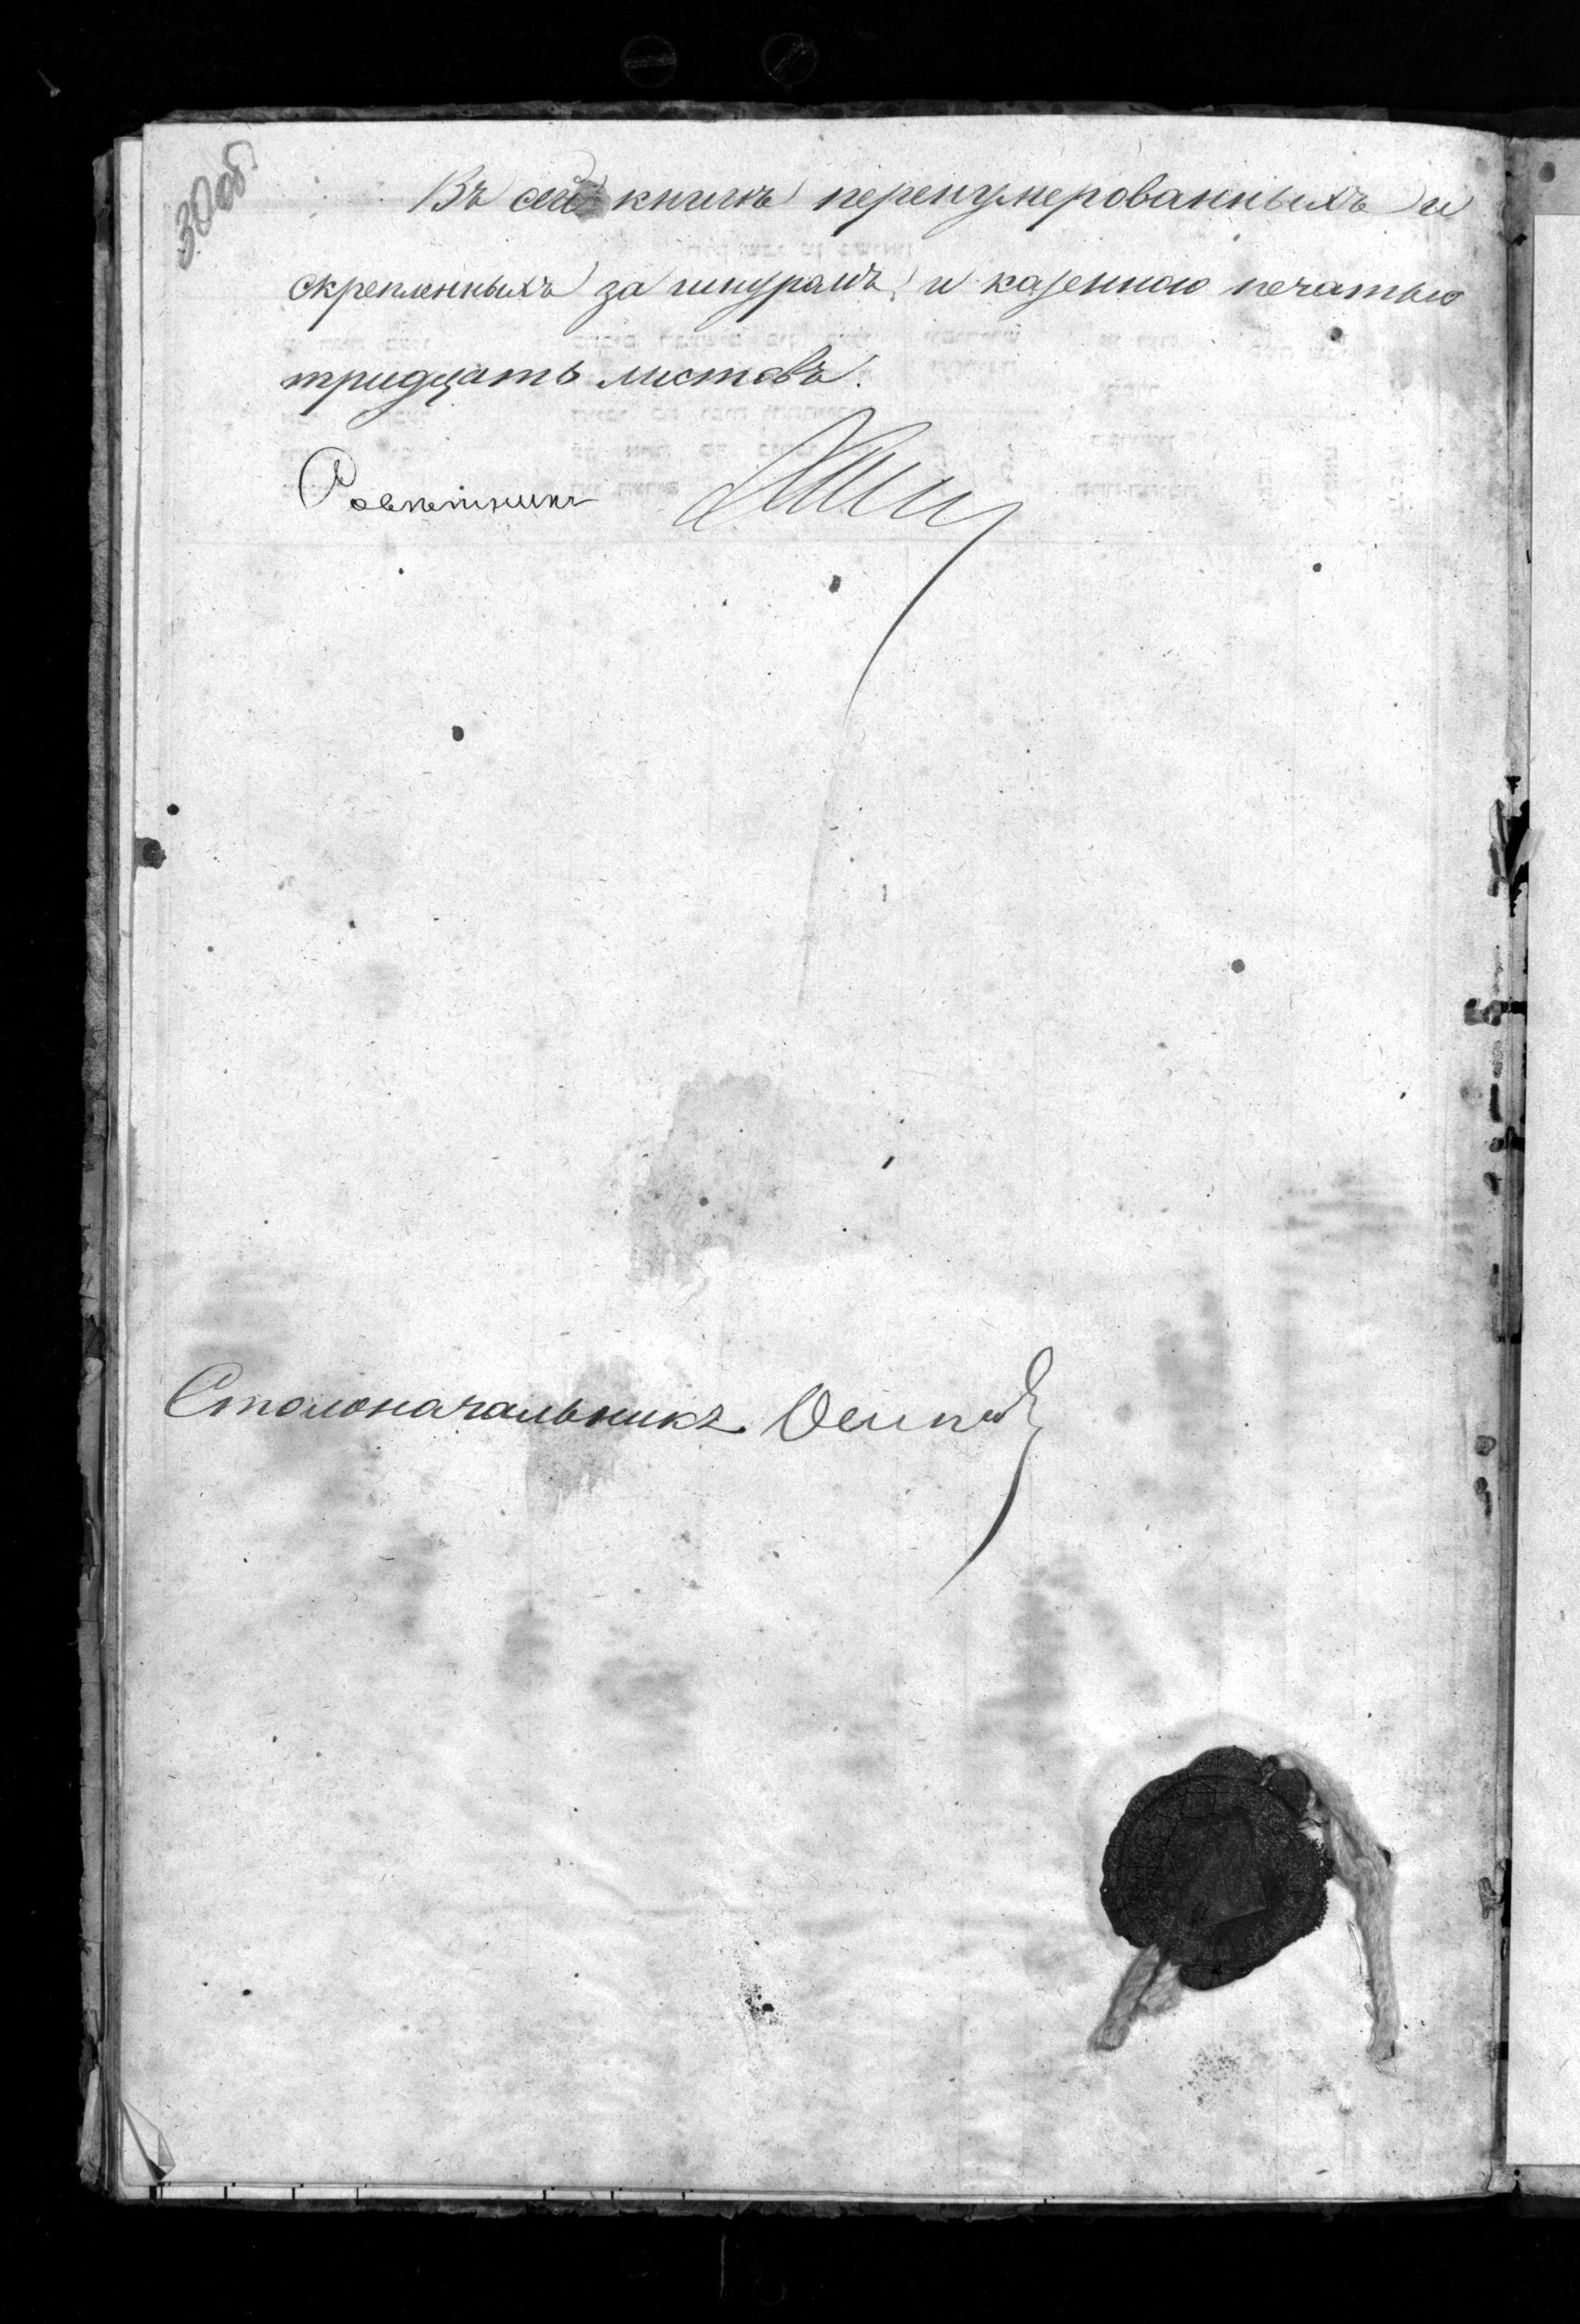 30 об.
Въ сей книгѣ перенумерованныхъ и
скрепленныхъ за шнурамъ и казенною печатью
тридцать листовъ.
Совѣтникъ
Столоначальникъ